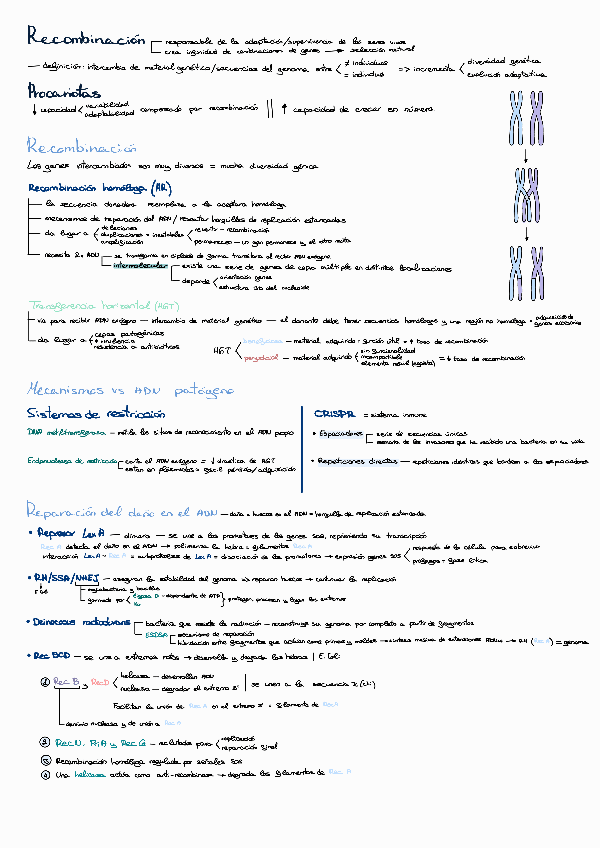 Recombinación
responsable de la adaptación/supervivencia de los seres vivos
crea infinidad de combinaciones de genes → selección natural
— definición: intercambio de material genético/secuencias del genoma entre ≠ individuos = individuo => incrementa diversidad genética evolución adaptativa
Procariotas
↓ capacidad variabilidad adaptabilidad compensado por recombinación || ↑ capacidad de crecer en número
Recombinación
Los genes intercambiados son muy diversos = mucha diversidad génica
Recombinación homóloga (RH)
la secuencia donadora reemplaza a la aceptora homóloga
mecanismos de reparación del ADN / rescatar horquillas de replicación estancadas
da lugar a deleciones duplicaciones = inestables revertir — recombinación
amplificación permanecer — un gen permanece y el otro muta
necesita 2x ADN — se transforma en diploide de forma transitoria al recibir ADN exógeno
intermolecular — existe una serie de genes de copia múltiple en distintas localizaciones
depende orientación genes
estructura 3D del nucleoide
Transferencia horizontal (HGT)
vía para recibir ADN exógeno — intercambio de material genético — el donante debe tener secuencias homólogas y una región no homóloga = adquisición de genes exógenos
da lugar a cepas patogénicas
↑ virulencia
resistencia a antibióticos
HGT beneficiosa — material adquirido = función útil = ↑ tasa de recombinación
perjudicial — material adquirido sin funcionalidad incompatible elemento móvil (egoísta) = ↓ tasa de recombinación
Mecanismos vs ADN patógeno
Sistemas de restricción
DNA metiltransferasa — metila los sitios de reconocimiento en el ADN propio
Endonucleasa de restricción — corta el ADN exógeno = ↓ drástica de HGT
están en plásmidos = fácil pérdida/adquisición
CRISPR = sistema inmune
• Espaciadores — serie de secuencias únicas
memoria de los invasores que ha recibido una bacteria en su vida
• Repeticiones directas — repeticiones idénticas que bordean a los espaciadores
Reparación del daño en el ADN — daño = huecos en el ADN = horquilla de replicación estancada
• Represor LexA — dímero — se une a los promotores de los genes SOS, reprimiendo su transcripción
Rec A detecta el daño en el ADN → polimeriza la hebra = filamentos Rec A
interacción LexA - Rec A = autoproteólisis de LexA = disociación de los promotores → expresión genes SOS respuesta de la célula para sobrevivir
profagos = fase lítica
• RH/SSA/NHEJ — aseguran la estabilidad del genoma vía reparan huecos → continuar la replicación
mycobacteria y bacillus
formado por ligasa D — dependiente de ATP Ku protegen, procesan y ligan los extremos
• Deinococcus radiodurans — bacteria que resiste la radiación — reconstruye su genoma por completo a partir de fragmentos
ESDSA — mecanismo de reparación
hibridación entre fragmentos que actúan como primers y moldes — síntesis masiva de extensiones → RH (Rec A) = genoma
• Rec BCD — se une a extremos rotos → desenrolla y degrada las hebras | E. Coli:
① Rec B y RecD helicasa — desenrollan ADN
nucleasa — degradar el extremo 3' se unen a la secuencia X (Chi)
Facilitar la unión de Rec A en el extremo 3' = filamento de Rec A
dominio nucleasa y de unión a Rec A
② Rec N, PriA y Rec G — reclutadas para replicación
reparación final
③ Recombinación homóloga regulada por señales SOS
④ Una helicasa actúa como anti-recombinasa → degrada los filamentos de Rec A